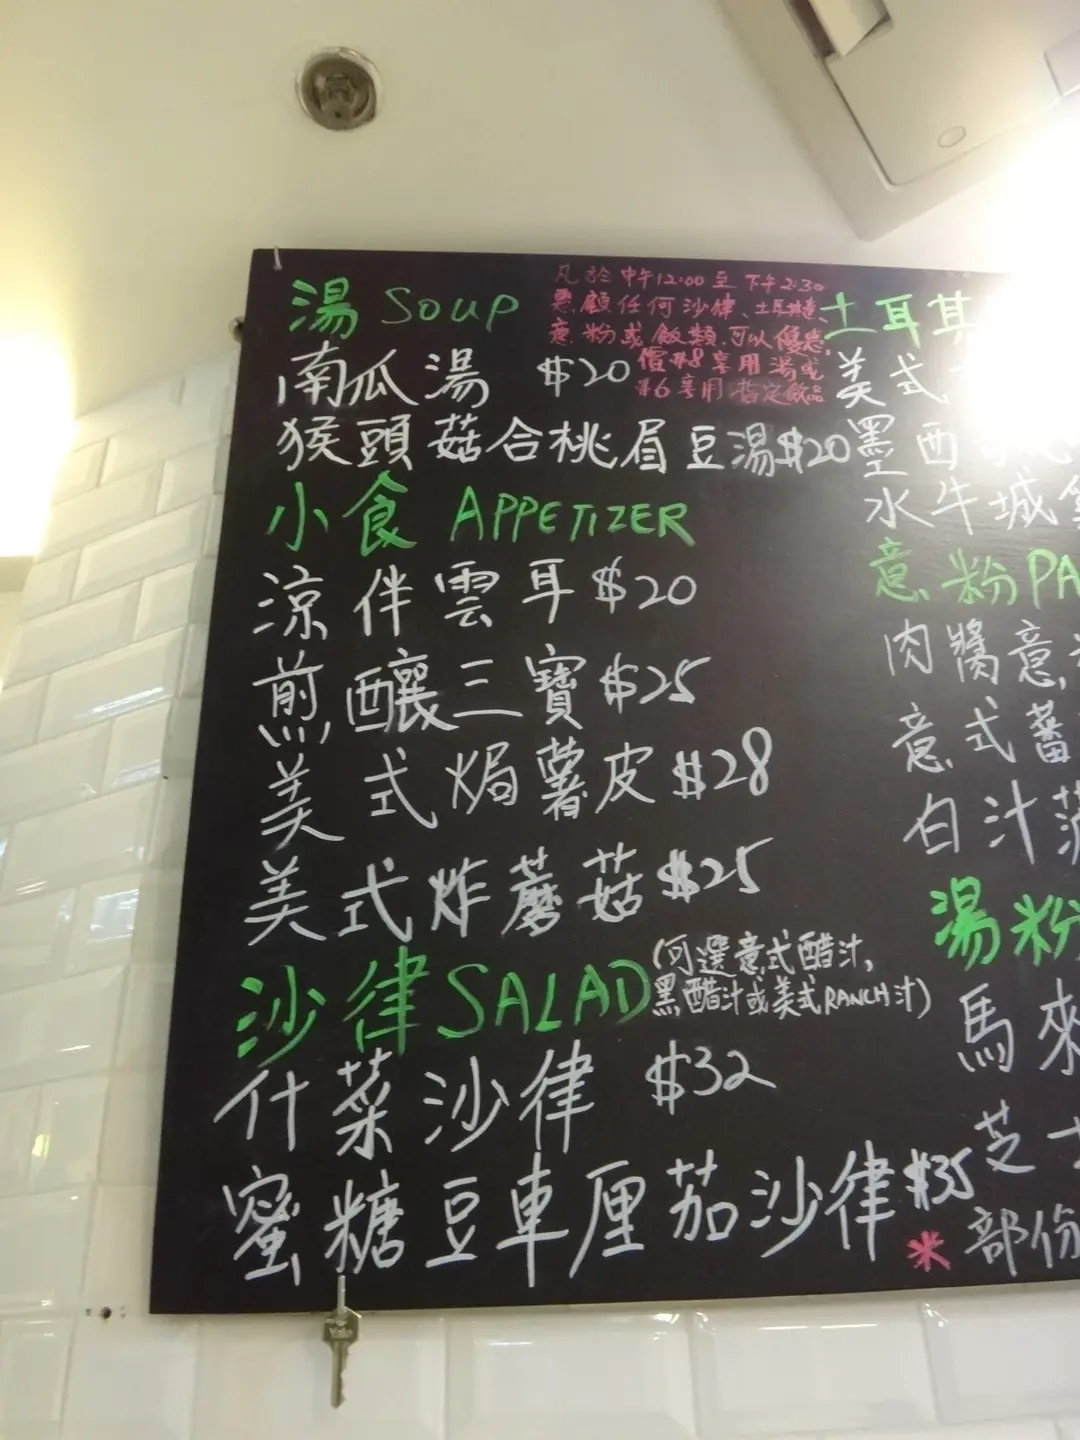 湯 SOUP
凡於中午12:00至下午2:30
惠顧任何沙律、土耳其卷、
意粉或飯類,可以優惠
價$8享用湯或
$6享用指定飲品
南瓜湯 $20
猴頭菇合桃眉豆湯$20
小食 APPETIZER
涼伴雲耳$20
煎釀三寶$25
美式焗薯皮$28
美式炸蘑菇$25
沙律SALAD
(可選意式醋汁,
黑醋汁或美式RANCH汁)
什菜沙律 $32
蜜糖豆車厘茄沙律$35
土耳其
美式
墨西
水牛城
意粉PA
肉醬意
意式蕃
白汁
湯粉
馬來
芝士
*部份